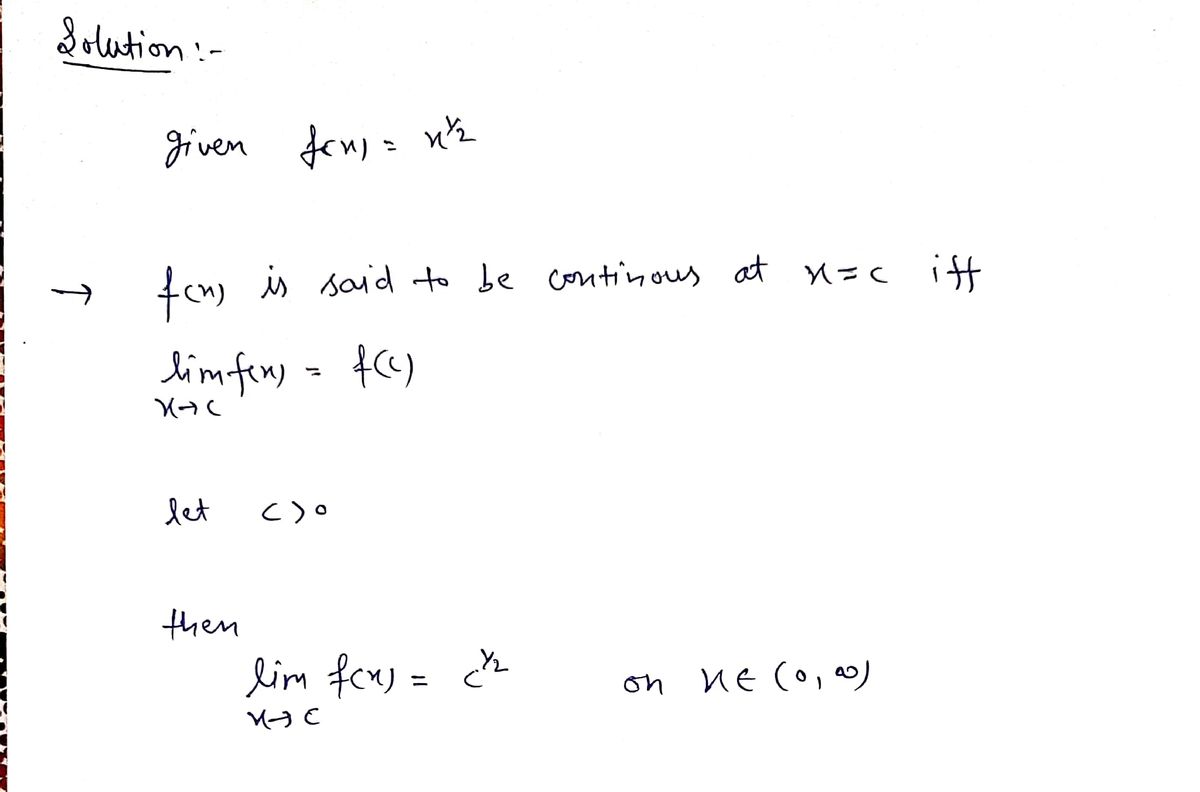 Solution :-
given f(x) = x^1/2
→ f(x) is said to be continous at x=c iff
lim f(x) = f(c)
x→c
let c>0
then
lim f(x) = c^1/2 on x∈ (0, ∞)
x→c